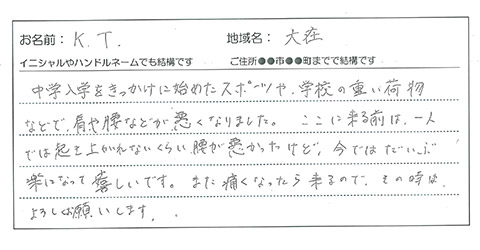 お名前： K.T. 地域名： 大在
イニシャルやハンドルネームでも結構です ご住所●●市●●町までで結構です
中学入学をきっかけに始めたスポーツや、学校の重い荷物
などで、肩や腰などが悪くなりました。 ここに来る前は、一人
では起き上がれないくらい腰が悪かったけど、今ではだいぶ
楽になって嬉しいです。また痛くなったら来るので、その時は
よろしくお願いします。